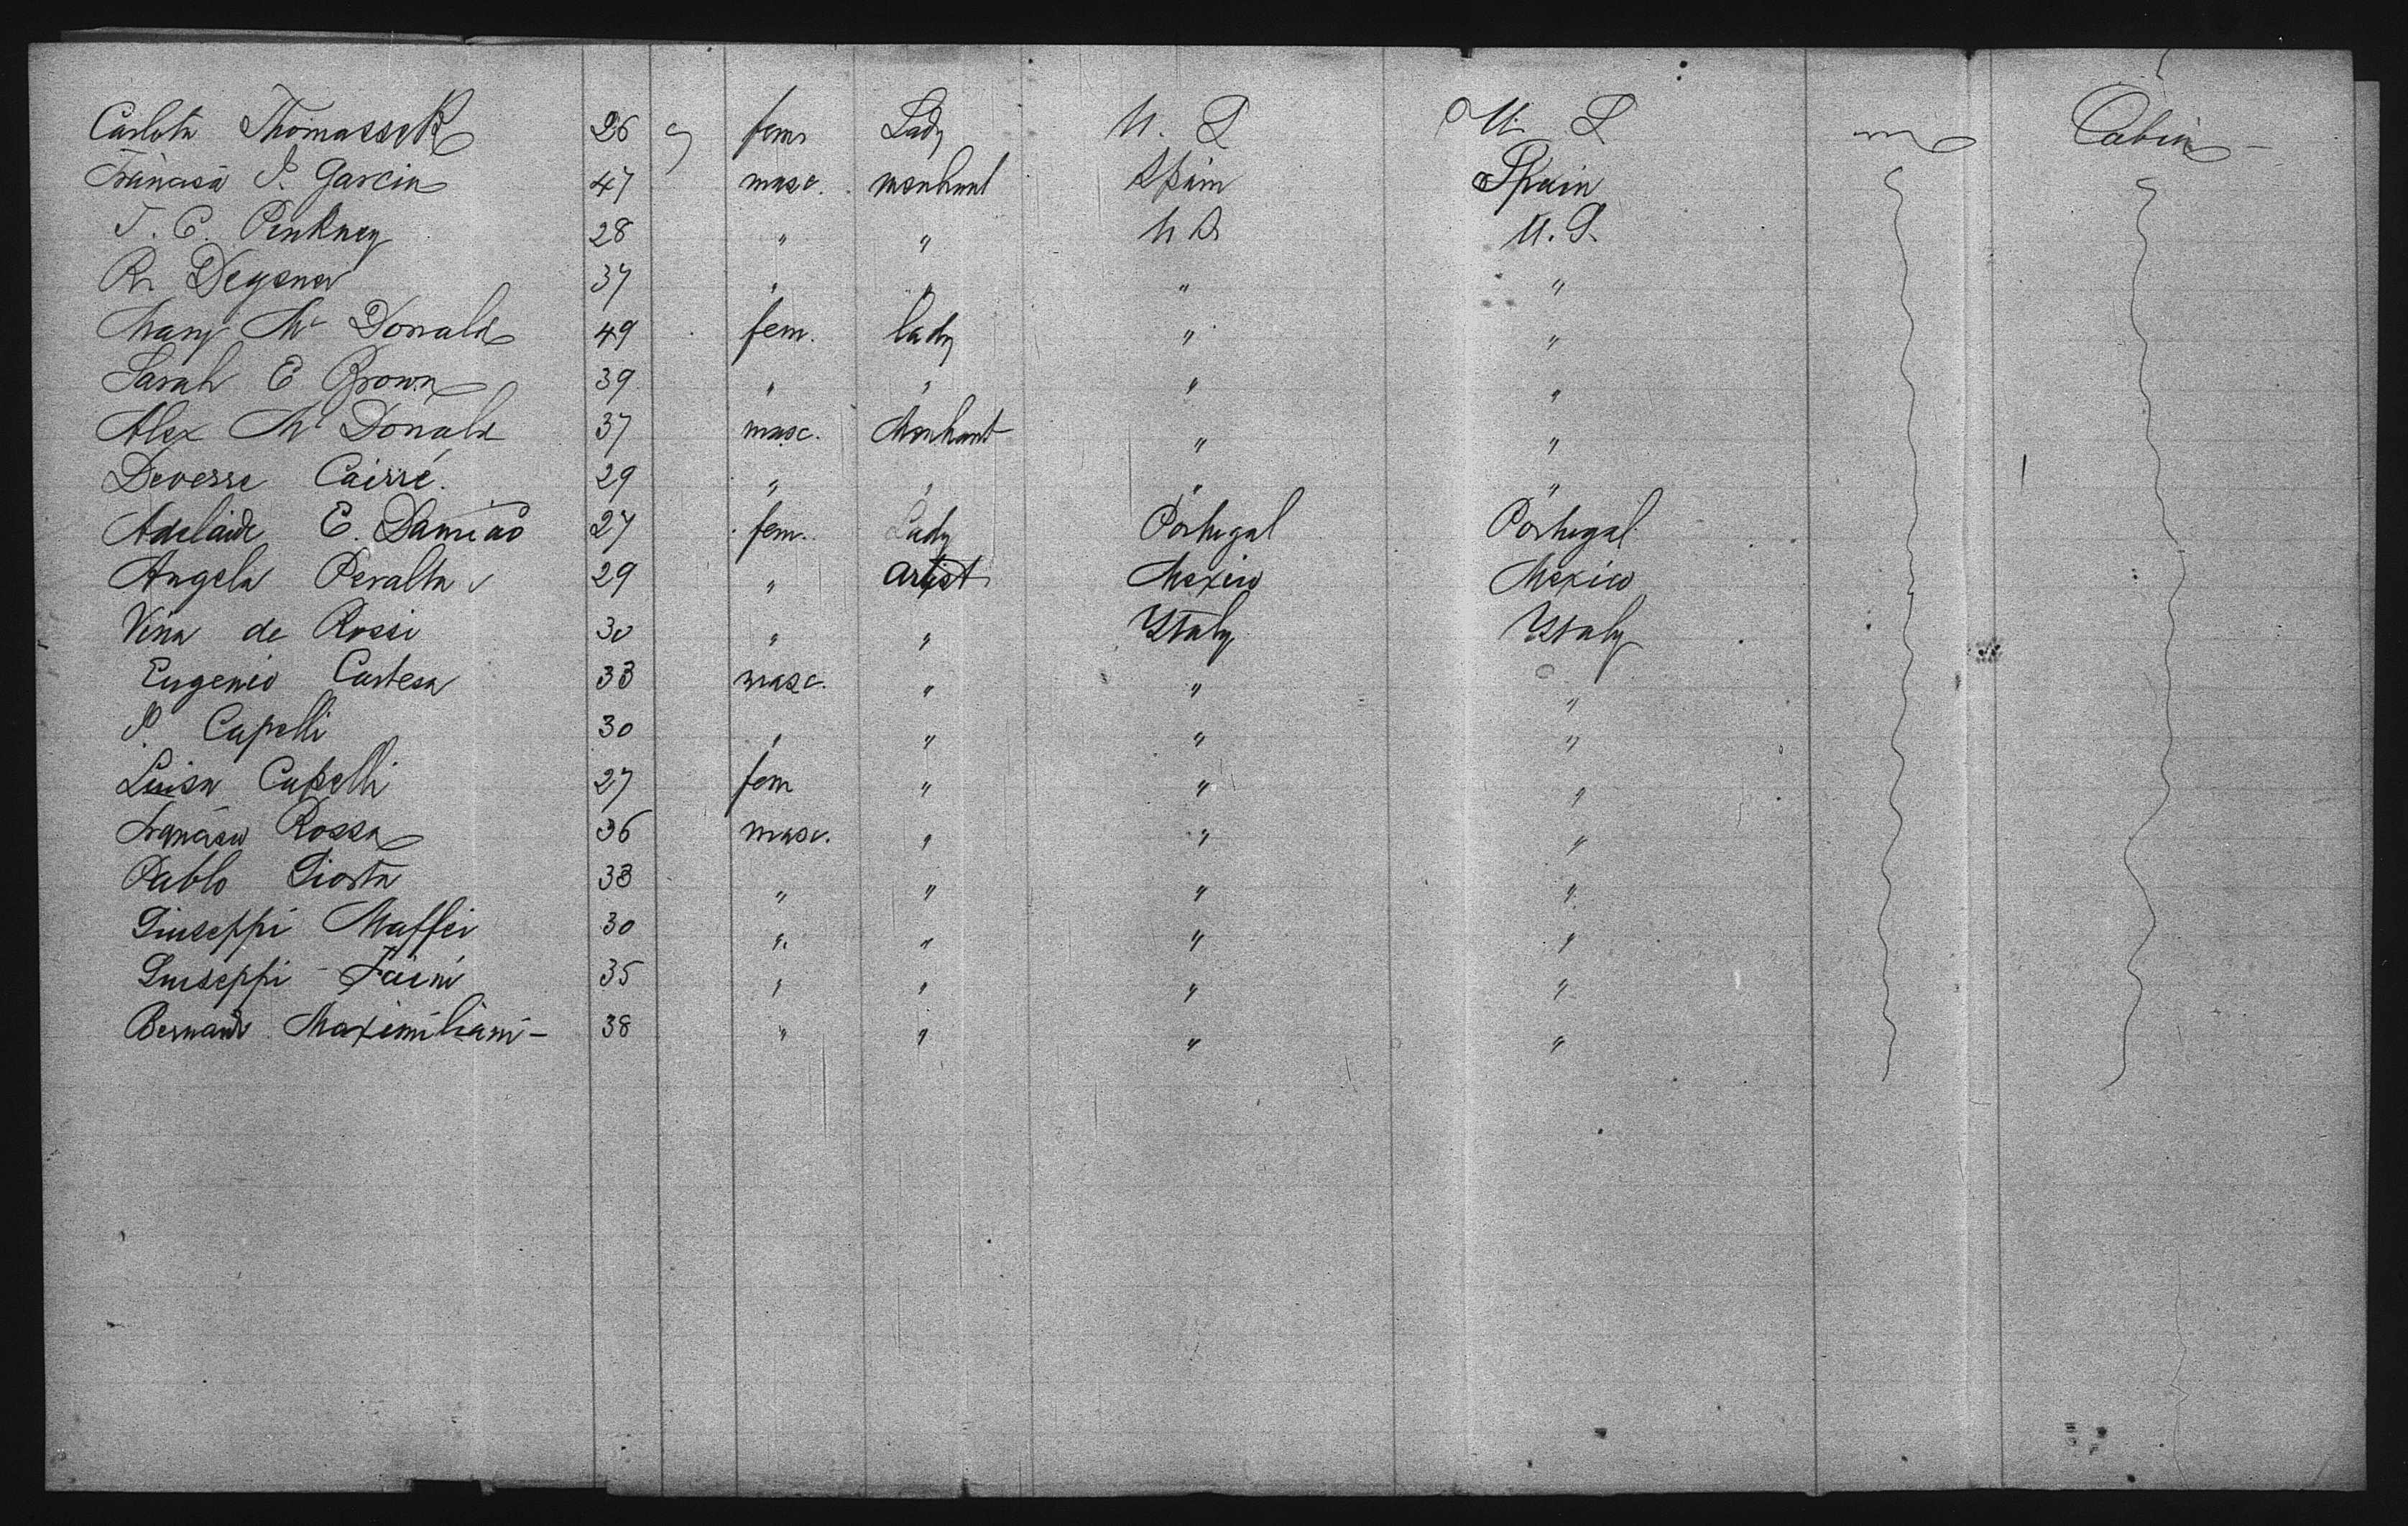 Carlota Thomassek 26 fem Lady U. S U. S Cabin
Francisco P. Garcia 47 masc. merchant Spain Spain
T. C. Pinkney 28 " " U S U. S.
R. Degener 37 " " " "
Mary Mc Donald 49 fem. lady " "
Sarah E Brown 39 " " " "
Alex Mc Donald 37 masc. Merchant " "
Devesse Cairré. 29 " " " "
Adelaide E. Damiao 27 fem. Lady Portugal Portugal
Angela Peralta 29 " artist Mexico Mexico
Vina de Rossi 30 " " Ytaly Ytaly
Eugenio Cortesa 33 masc. " " "
P. Capelli 30 " " " "
Luisa Capelli 27 fem " " "
Francisco Rossa 36 masc. " " "
Pablo Giorta 33 " " " "
Giuseppi Maffei 30 " " " "
Giuseppi 35 " " " "
Bernardo Maximiliani - 38 " " " "